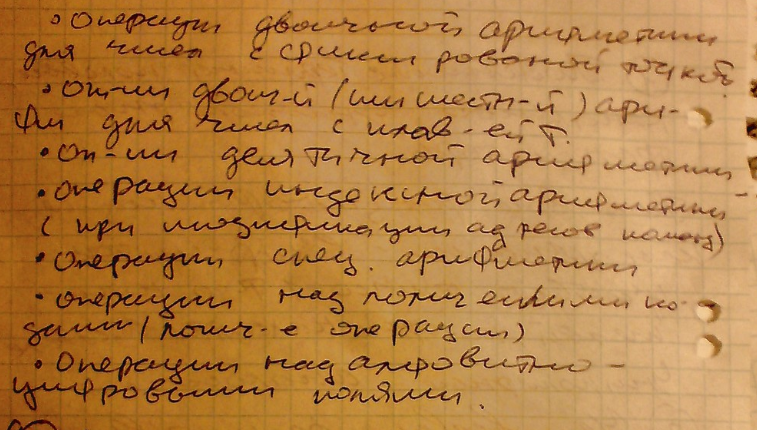 • Операции двоичной арифметики
для чисел с фиксированой точкой.
• Оп-ии двоич-й (или шестн-й) ари-
фм для чисел с плав-ей т.
• Оп-ии десятичной арифметики
• операции индексной арифметики
(при модификации адресов команд)
• Операции спец. арифметики
• операции над логическими ко-
дами (логич-е операции)
• Операции над алфовитно-
цифровыми полями.